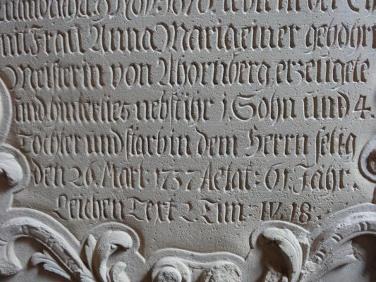 mit Frau Anna Maria einer gebohrn
Meisterin von Ahornberg. erzeugete
und hinterlies nebst ihr 1. Sohn und 4.
Töchter und starb in dem Herrn selig
den 26. Mart: 1737. Aetat: 61. Jahr.
Leichen Text 2. Tim: IV. 18.